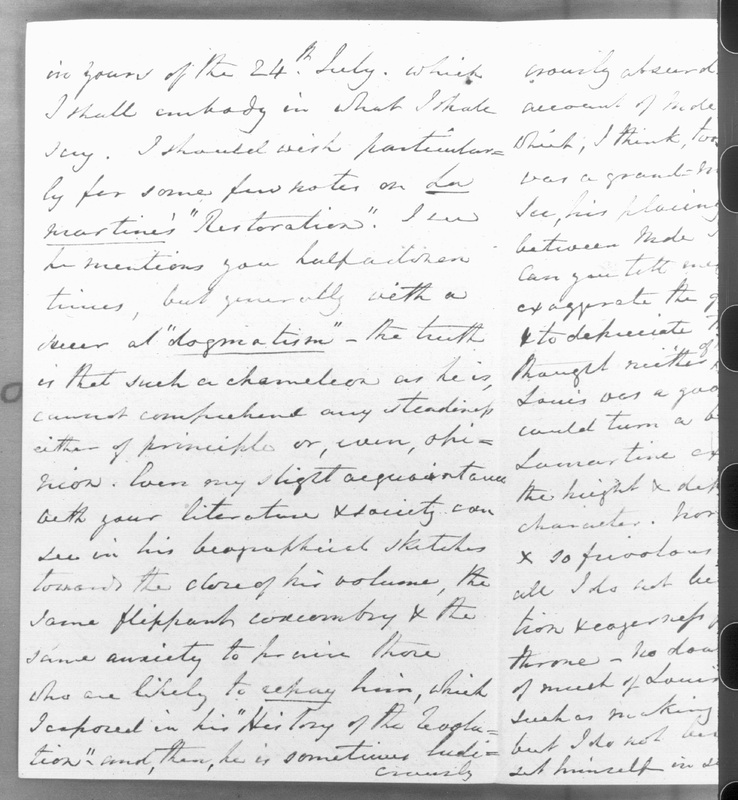 in yours of the 24th. July. which
I shall embody in what I shall
say. I should wish particular=
ly for some few notes on La
martine's "Restoration". I see
he mentions you half a dozen
times, but generally with a
sneer at "dogmatism" - the truth
is that such a chameleon as he is,
cannot comprehend any steadiness
either of principle or, even, opi=
nion. Even my slight acquaintance
with your literature & society can
see in his biographical sketches
towards the close of his volume, the
same flippant coxcombry & the
same anxiety to praise those
who are likely to repay him, which
I exposed in his "History of the Revolu=
tion" - and, then, he is sometimes ludi=
crously
crously absurd
account of Mde
which, I think, too
was a grand=
his placing
between Mde
can you tell me
exaggerate the
& to depreciate
thought neither of
Louis was a goo
could turn a
Lamartine ex
the height & dep
character. Nor
& so frivolous
all I do not be
tion & eagerness
throne - No dou
of much of Louis
such as making
but I do not be
set himself in